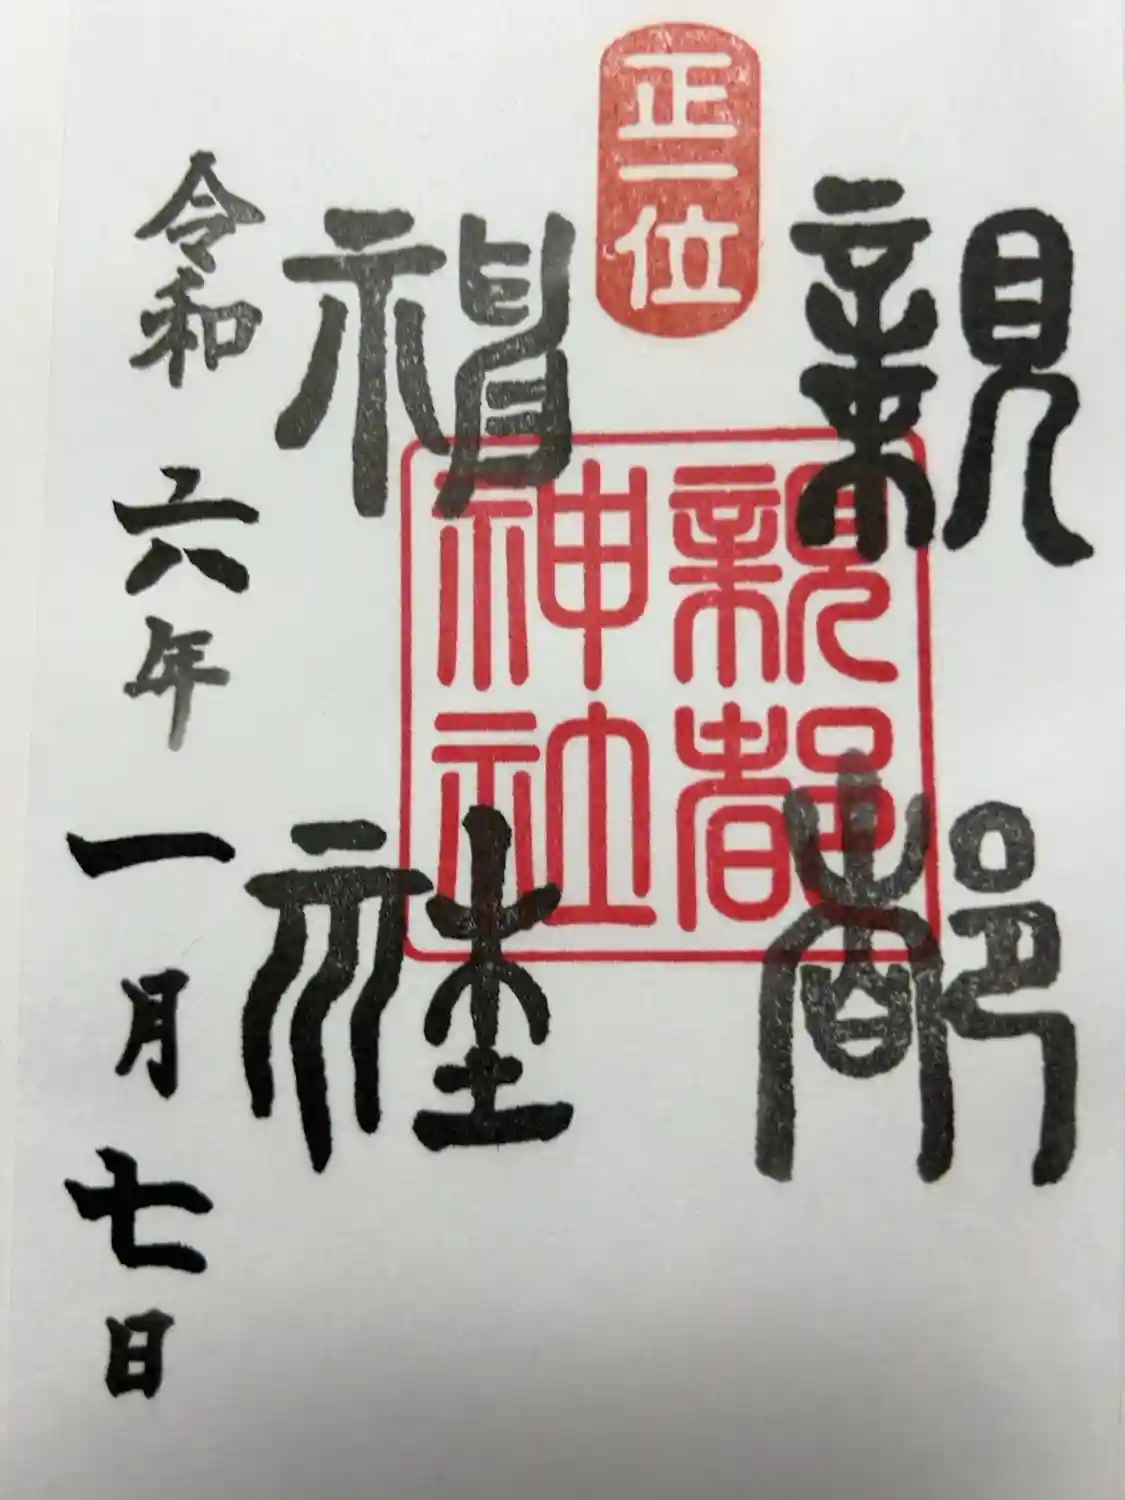 親都
正一位
親都
神社
神社
令和六年一月七日